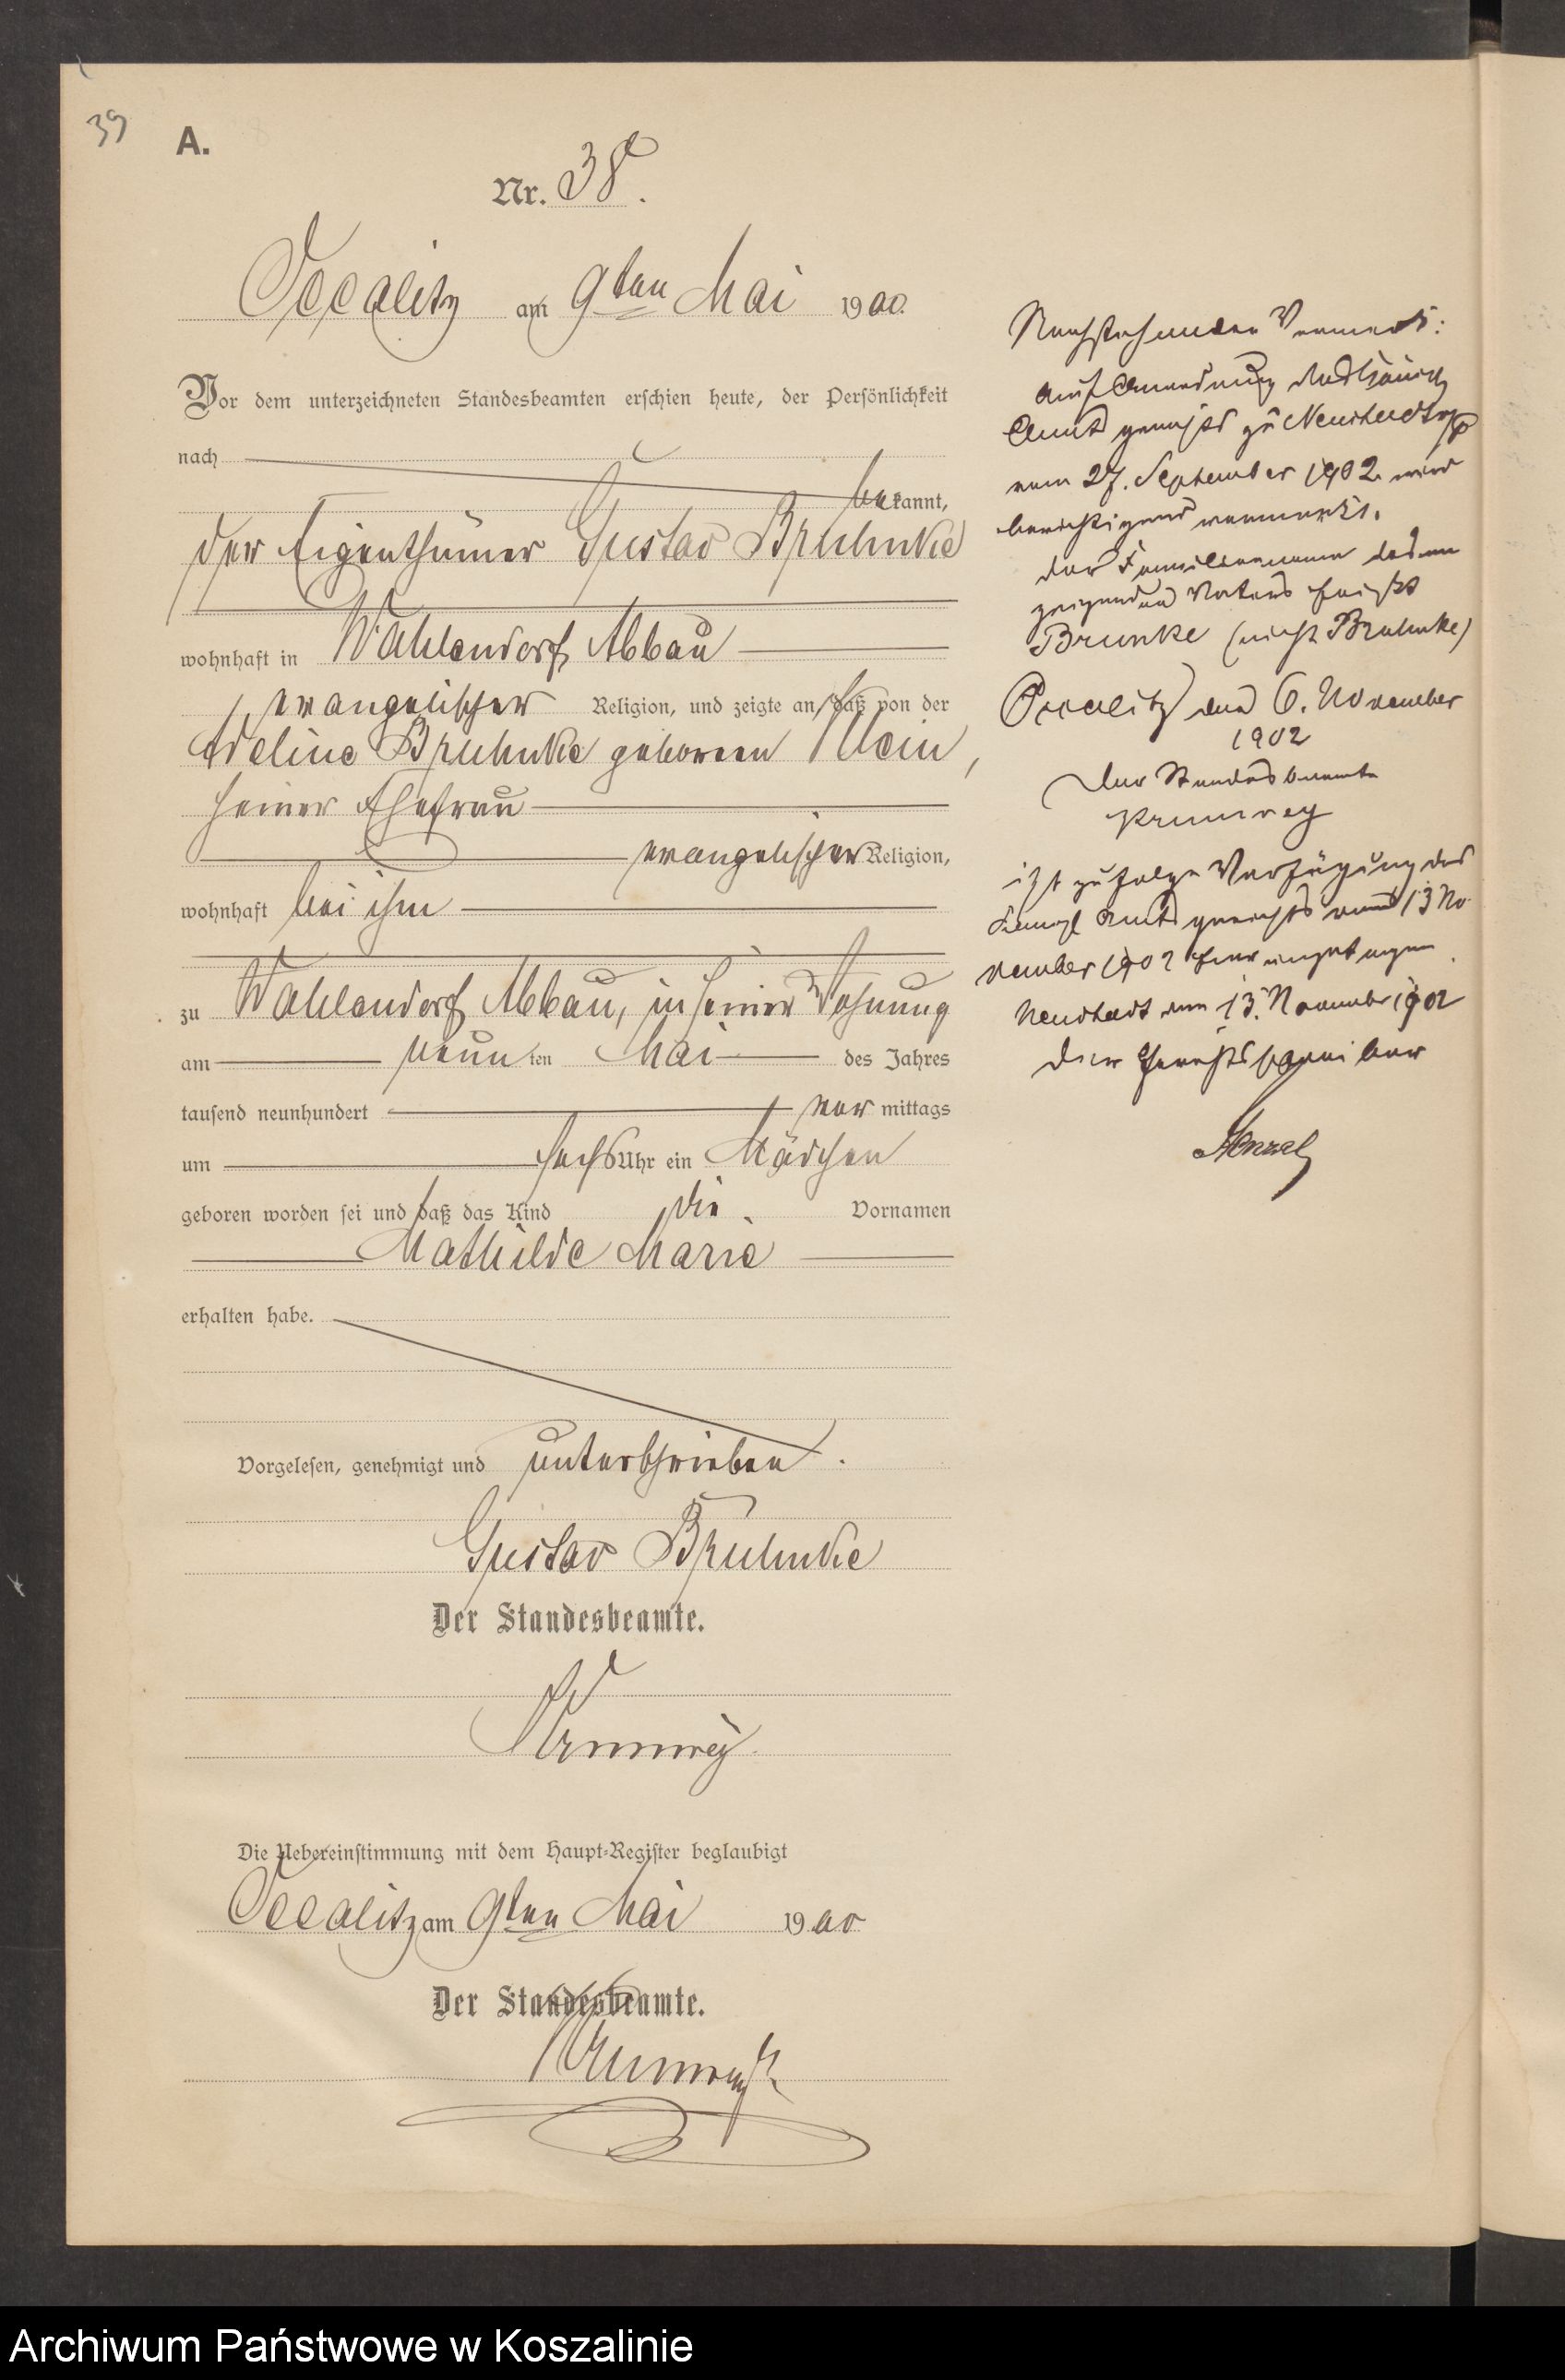 39
A.
Nr. 38.
Occalitz am 9ten Mai 1900.
Vor dem unterzeichneten Standesbeamten erschien heute, der Persönlichkeit
nach
bekannt,
der Eigenthümer Gustav Bruhnke
wohnhaft in Wahlendorf Abbau
evangelischer Religion, und zeigte an, daß von der
Adeline Bruhnke geborenen Klein,
seiner Ehefrau
evangelischer Religion,
wohnhaft bei ihm
zu Wahlendorf Abbau, in seiner Wohnung
am neunten Mai des Jahres
tausend neunhundert vor mittags
um sechs Uhr ein Mädchen
geboren worden sei und daß das Kind die Vornamen
Mathilde Marie
erhalten habe.
Vorgelesen, genehmigt und unterschrieben.
Gustav Bruhnke
Der Standesbeamte.
Krumrey
Die Uebereinstimmung mit dem Haupt-Register beglaubigt
Occalitz am 9ten Mai 1900
Der Standesbeamte.
Krumrey
Nachstehender Vermerk:
Auf Anordnung des Königl
Amtsgerichts zu Neustadt Wpr
vom 27. September 1902 wird
berichtigend vermerkt.
der Familienname des an
zeigenden Vaters heißt
Brunke (nicht Bruhnke)
Occalitz den 6. November
1902
Der Standesbeamte
Krumrey
ist zufolge Verfügung des
Königl Amtsgerichts vom 13 No
vember 1902 hier eingetragen.
Neustadt den 13. November 1902
Der Gerichtsschreiber
Archiwum Państwowe w Koszalinie